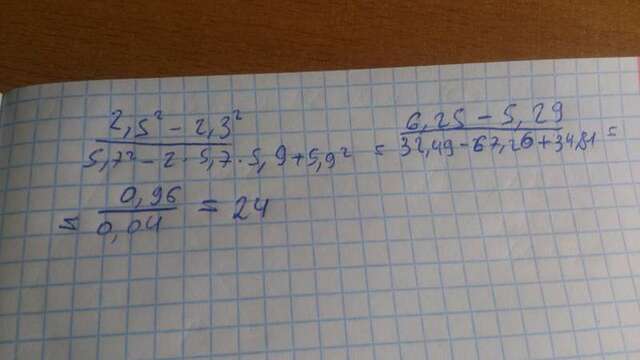 2,5² - 2,3² / 5,7² - 2 · 5,7 · 5,9 + 5,9² = 6,25 - 5,29 / 32,49 - 67,26 + 34,81 =
= 0,96 / 0,04 = 24